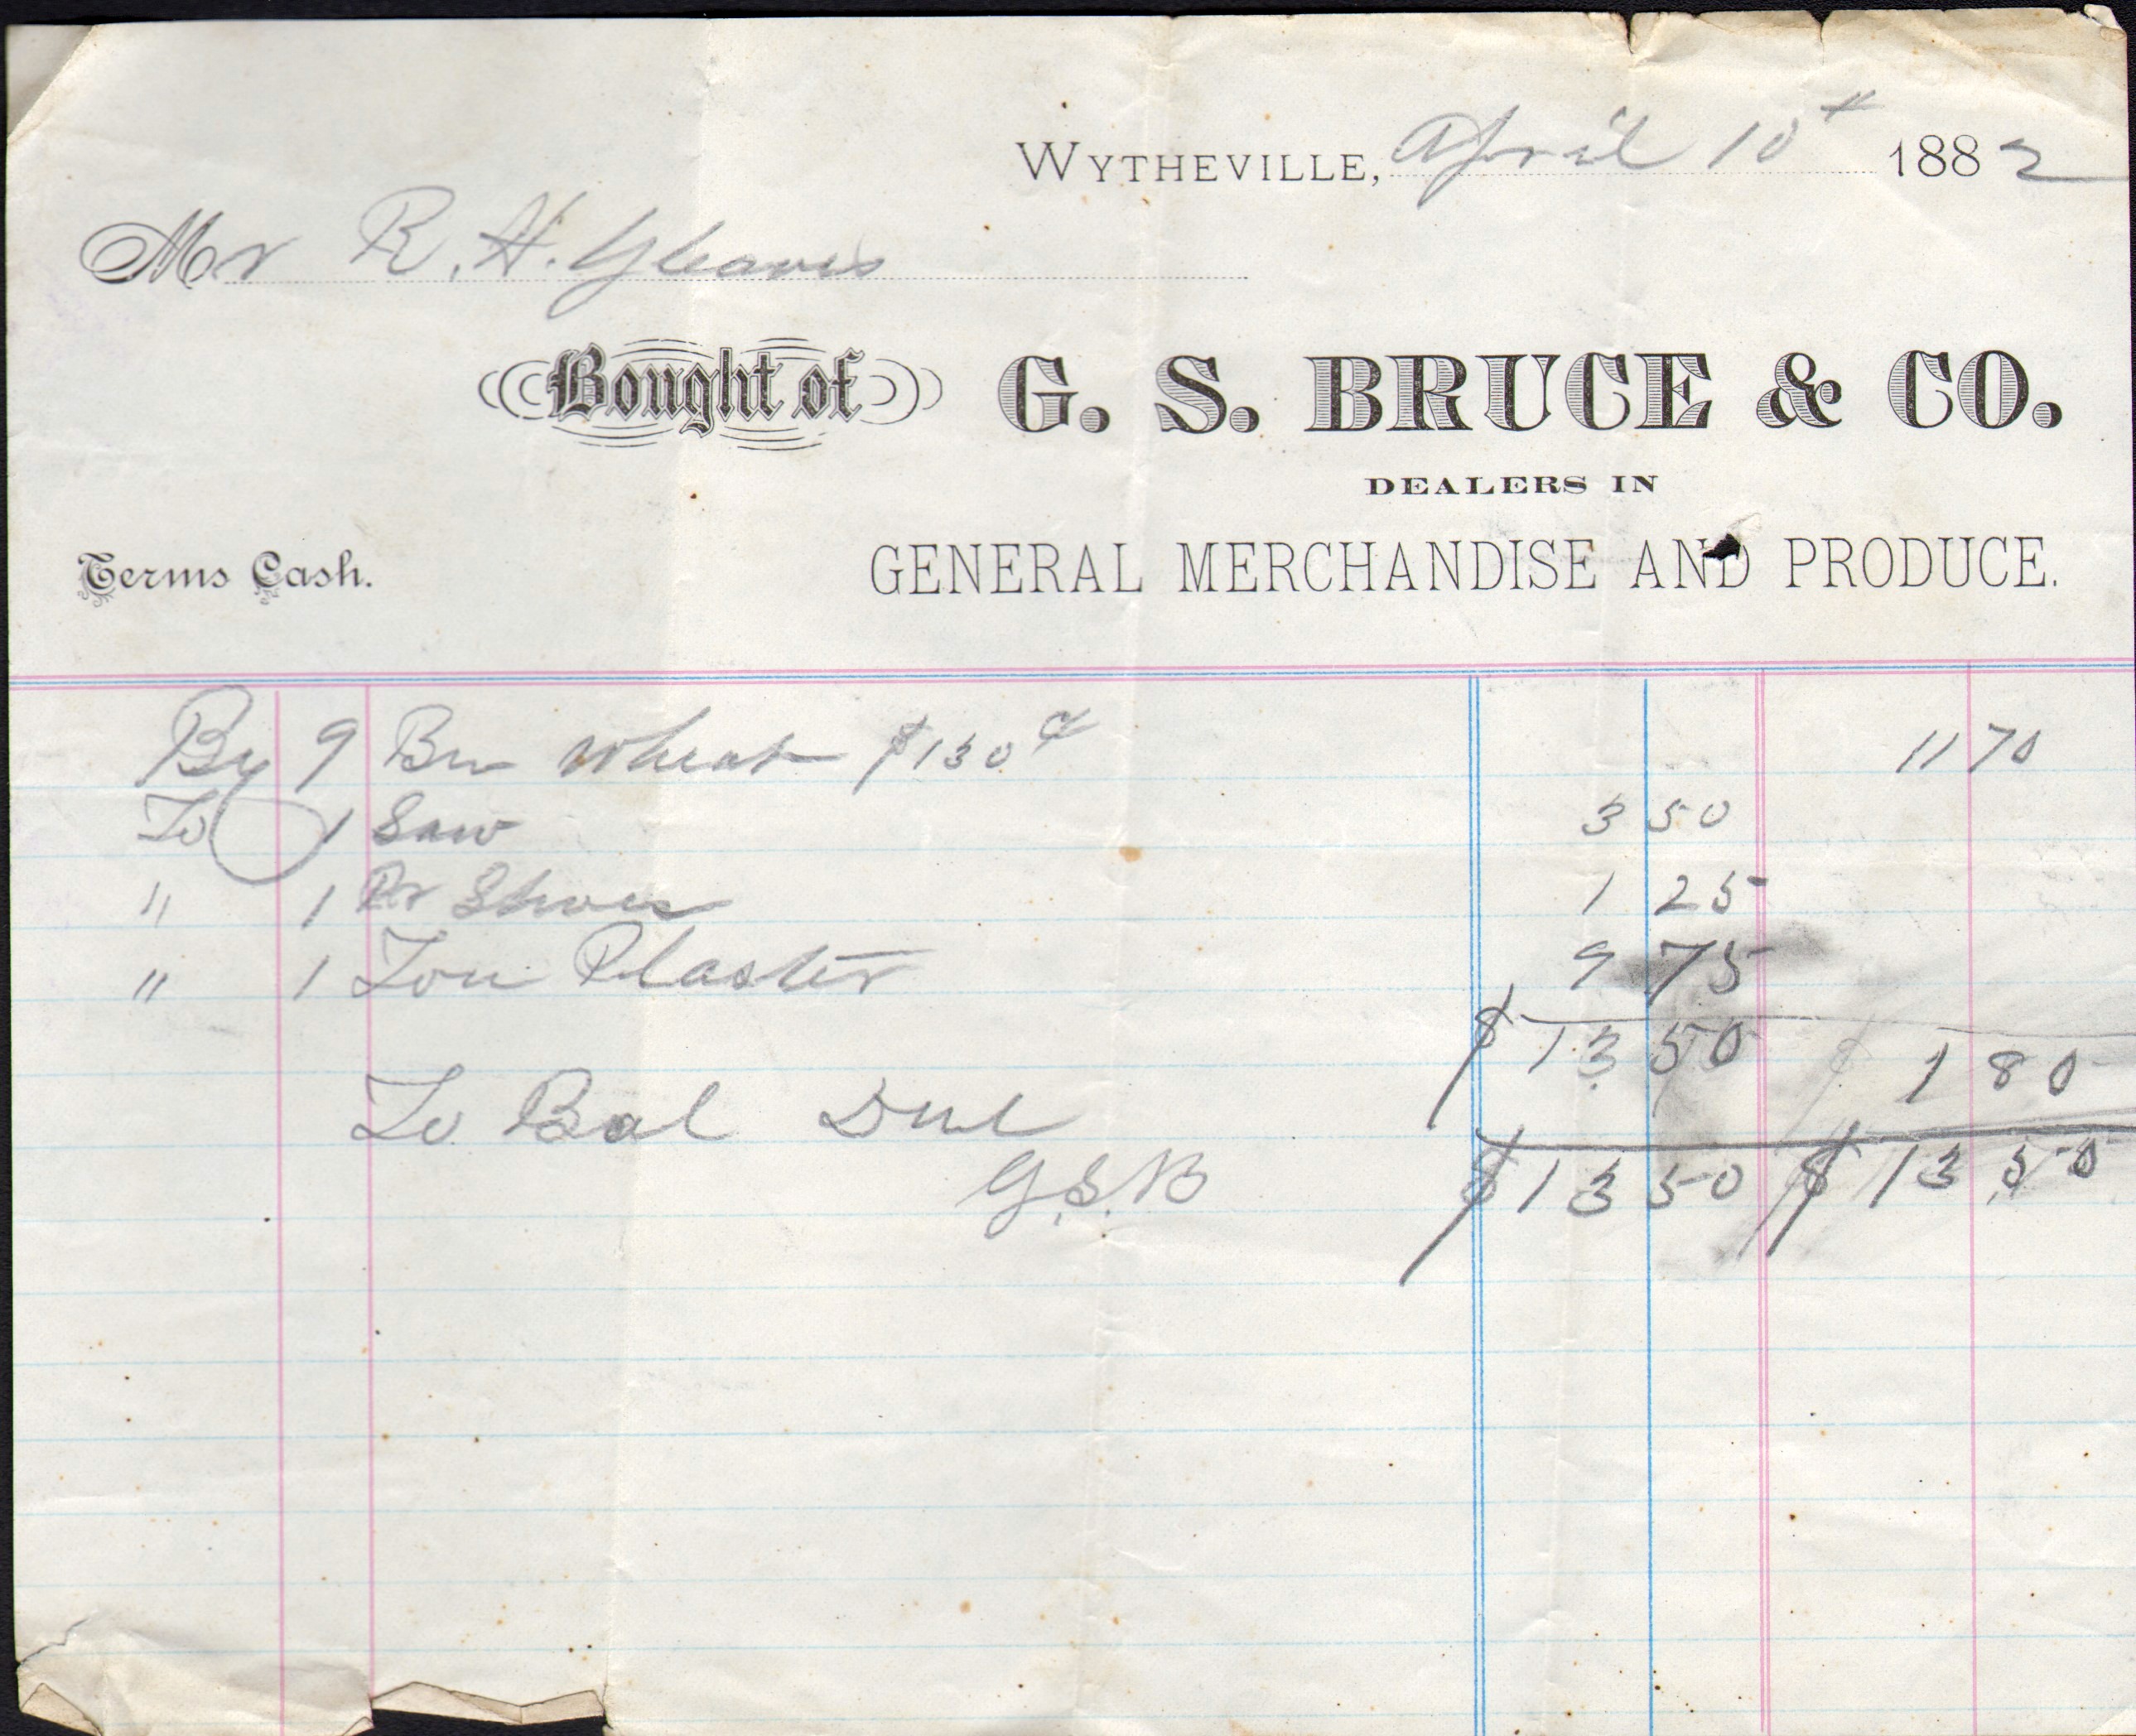 WYTHEVILLE, April 10th 1882
Mr R. H. Gleaves
Bought of G. S. BRUCE & CO.
DEALERS IN
Terms Cash. GENERAL MERCHANDISE AND PRODUCE.
By 9 Bu Wheat $130 11 70
To 1 Saw 3 50
" 1 Pr Shoes 1 25
" 1 Ton Plaster 9 75
$13 50
To Bal Due 1 80
G.S.B $13 50 $13 50